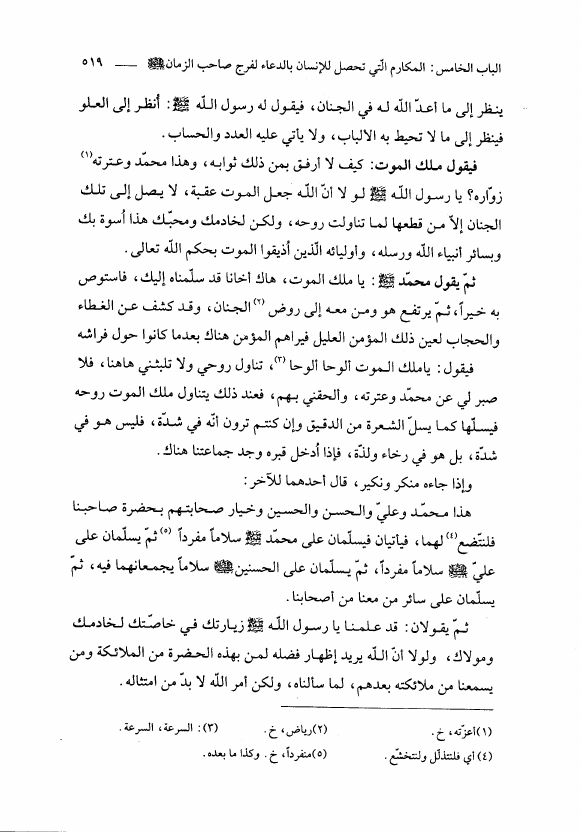 الباب الخامس: المكارم الّتي تحصل للإنسان بالدعاء لفرج صاحب الزمان ﷺ ــــ ٥١٩
ينظر إلى ما أعدّ اللّه له في الجنان، فيقول له رسول اللّه ﷺ: أنظر إلى العلو
فينظر إلى ما لا تحيط به الالباب، ولا يأتي عليه العدد والحساب.
فيقول ملك الموت: كيف لا أرفق بمن ذلك ثوابه، وهذا محمّد وعترته(١)
زوّاره؟ يا رسول اللّه ﷺ لو لا أنّ اللّه جعل الموت عقبة، لا يصل إلى تلك
الجنان إلاّ من قطعها لما تناولت روحه، ولكن لخادمك ومحبّك هذا أسوة بك
وبسائر أنبياء اللّه ورسله، وأوليائه الّذين أذيقوا الموت بحكم اللّه تعالى.
ثمّ يقول محمّد ﷺ: يا ملك الموت، هاك أخانا قد سلّمناه إليك، فاستوص
به خيراً، ثمّ يرتفع هو ومن معه إلى روض(٢) الجنان، وقد كشف عن الغطاء
والحجاب لعين ذلك المؤمن العليل فيراهم المؤمن هناك بعدما كانوا حول فراشه
فيقول: ياملك الموت ألوحا ألوحا(٣)، تناول روحي ولا تلبثني هاهنا، فلا
صبر لي عن محمّد وعترته، وألحقني بهم، فعند ذلك يتناول ملك الموت روحه
فيسلّها كما يسلّ الشعرة من الدقيق وإن كنتم ترون أنّه في شدّة، فليس هو في
شدّة، بل هو في رخاء ولذّة، فإذا أدخل قبره وجد جماعتنا هناك.
وإذا جاءه منكر ونكير، قال أحدهما للآخر:
هذا محمّد وعليّ والحسن والحسين وخيار صحابتهم بحضرة صاحبنا
فلنتّضع(٤) لهما، فيأتيان فيسلّمان على محمّد ﷺ سلاماً مفرداً(٥) ثمّ يسلّمان على
عليّ سلاماً مفرداً، ثمّ يسلّمان على الحسنين سلاماً يجمعانهما فيه، ثمّ
يسلّمان على سائر من معنا من أصحابنا.
ثمّ يقولان: قد علمنا يا رسول اللّه ﷺ زيارتك في خاصّتك لخادمك
ومولاك، ولولا أنّ اللّه يريد إظهار فضله لمن بهذه الحضرة من الملائكة ومن
يسمعنا من ملائكته بعدهم، لما سألناه، ولكن أمر اللّه لا بدّ من امتثاله.
(١) أعزّته، خ. (٢) رياض، خ. (٣): السرعة، السرعة.
(٤) أي فلنتذلّل ولنتخشّع. (٥) منفرداً، خ. وكذا ما بعده.